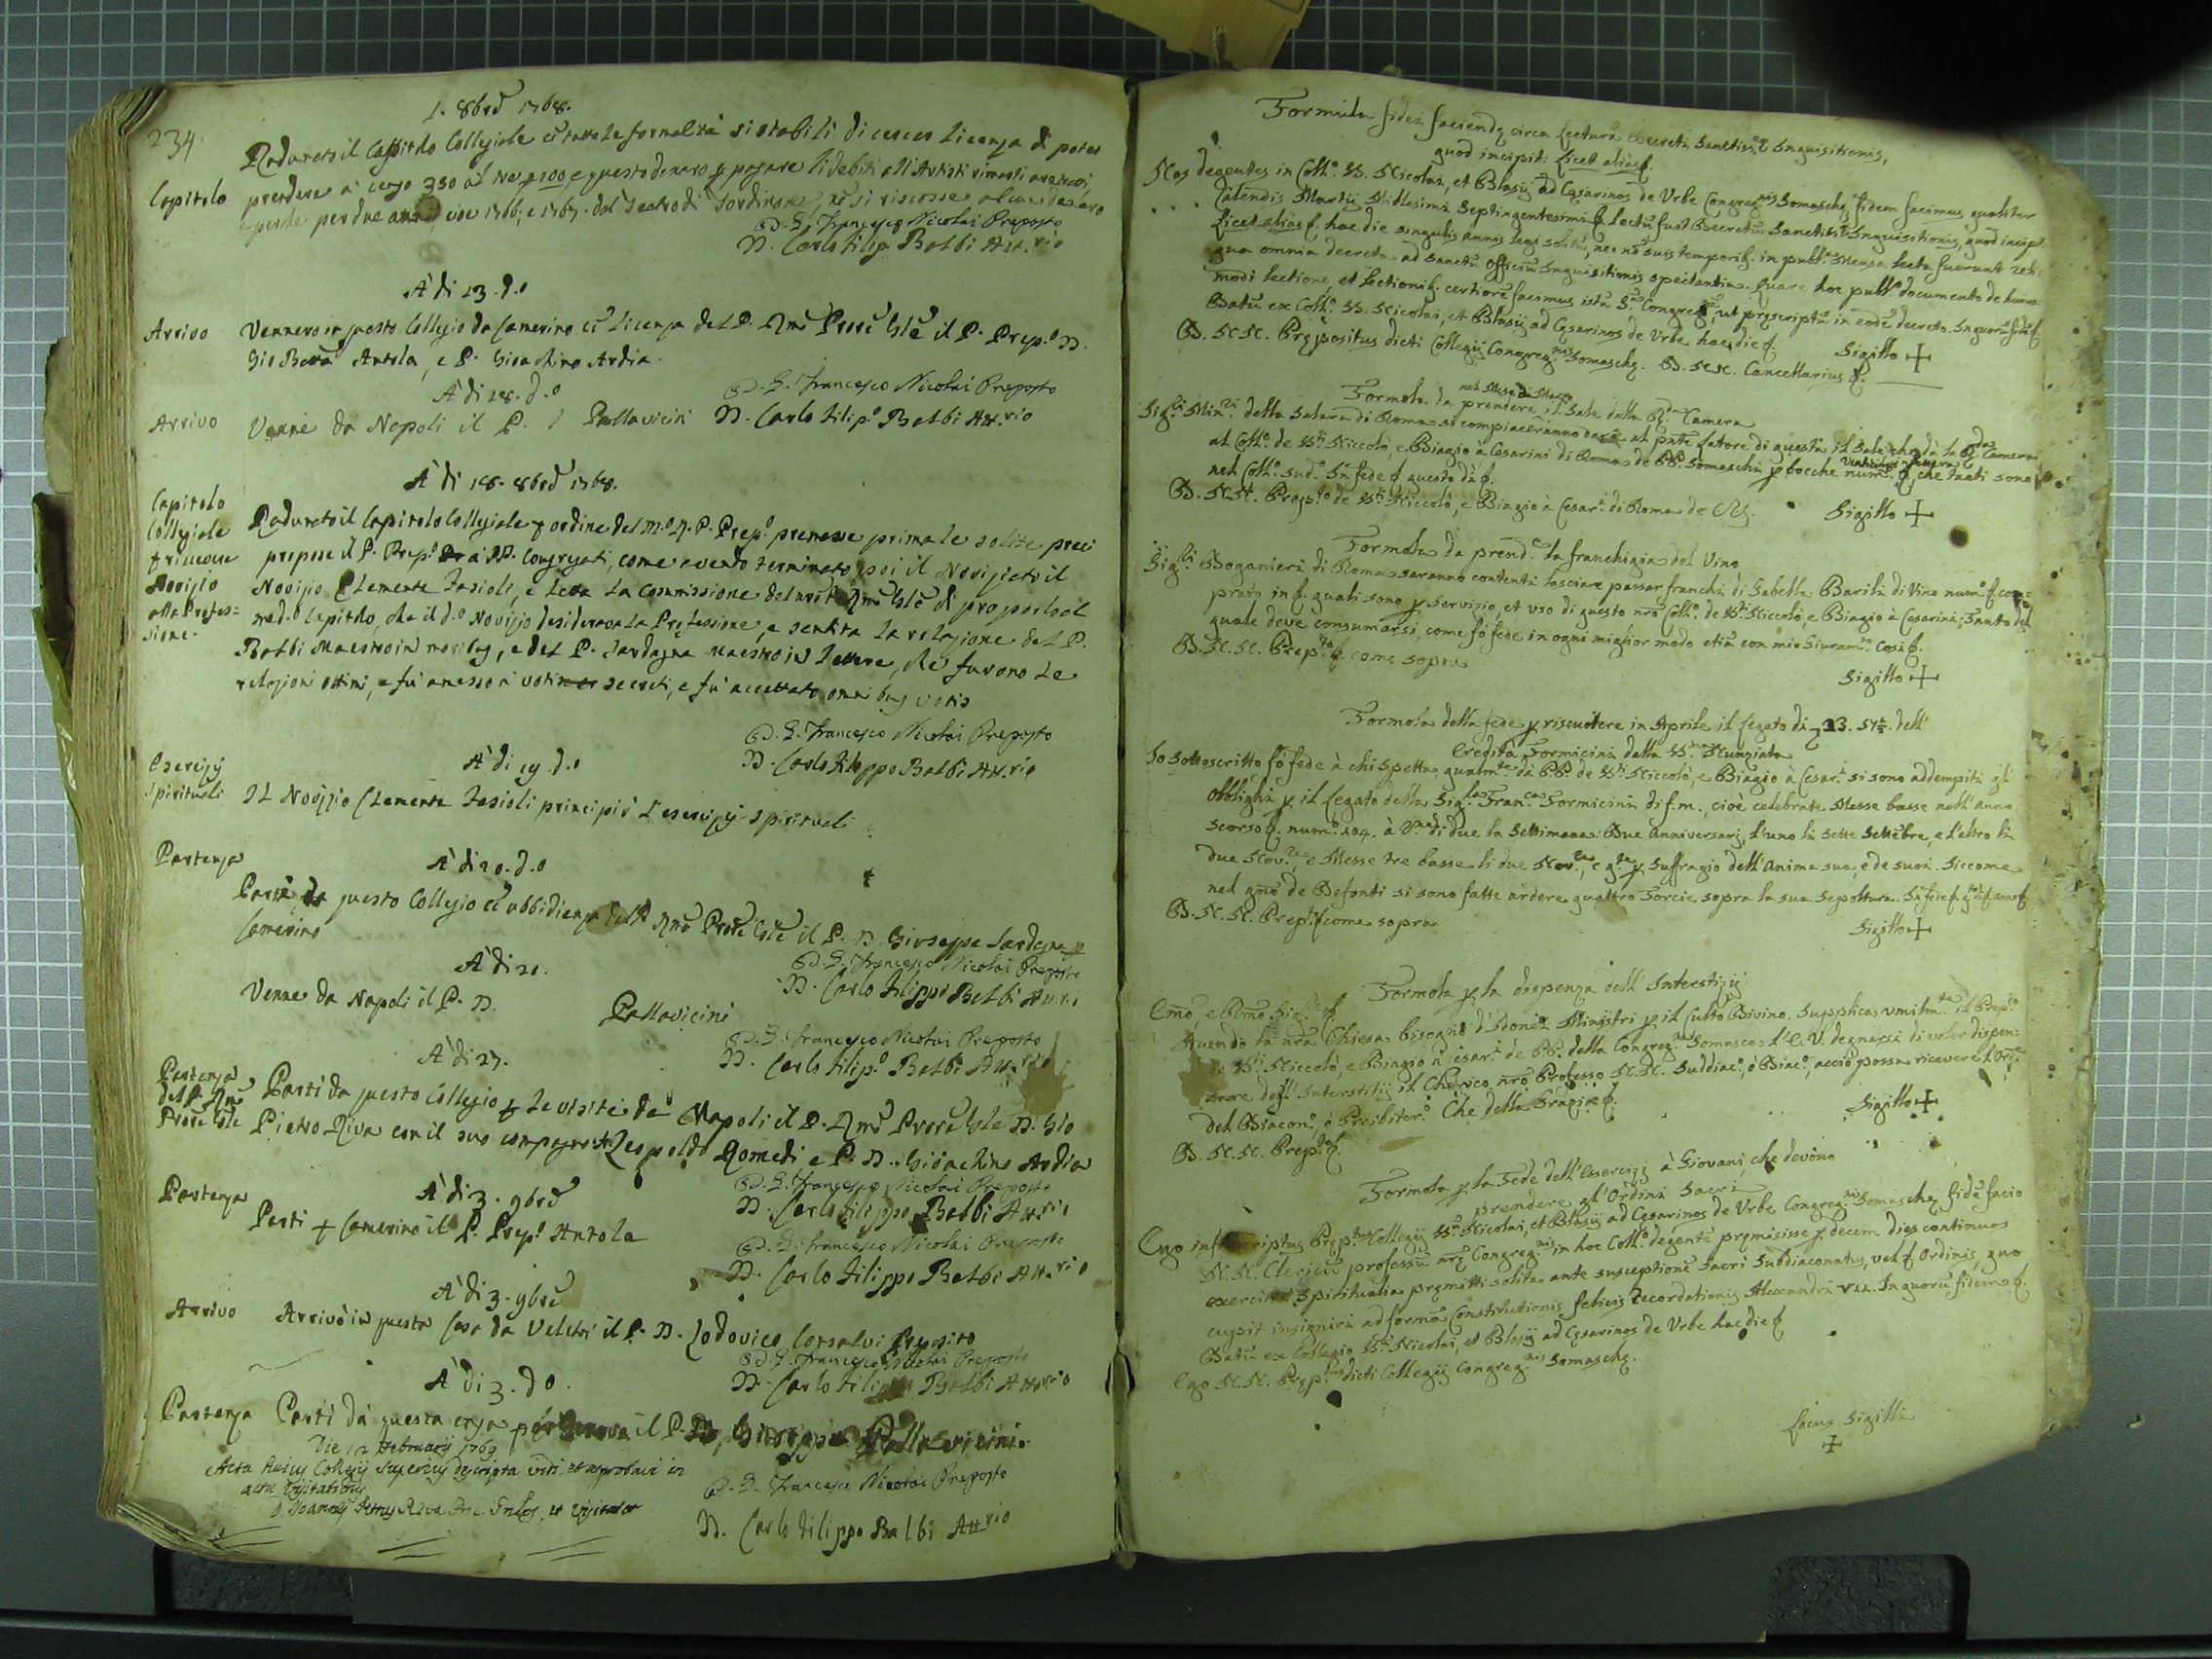 234.
1. 8bre 1768.
Capitolo
Radunato il Capitolo Collegiale cū tutte le formalità si stabilì di cercar licenza di poter
prendere à censo 350 al
questo denaro p pagare li debiti alli Artisti rimasti arretrati,
e perche per due anni, cioe 1766, e 1767. dal Teatro di Tordinona, nō si riscosse alcun denaro
D. G. Francesco Nicolai Preposto
D. Carlo Filip.o Balbi Att.rio
A' di 13. d.o
Arrivo
Vennero in questo Collegio da Camerino cū licenza del P. Rmō Prore Gle il P. Prep.o D.
Gio Batta Antola, e P. Gioachino Ardia.
A' di 18. d.o
D. G. Francesco Nicolai Preposto
Arrivo
Venne da Napoli il P. Pallavicini
D. Carlo Filip.o Balbi Att.rio
A' di 18. 8bre 1768.
Capitolo
Collegiale
p ricevere
Novizio
alla Profes=
sione.
Radunato il Capitolo Collegiale p ordine del M.o R. P. Prep.o premesse prima le solite preci
propose il P. Prep.o a PP. Congregati, come avendo terminato poi il Noviziato il
Novizio Clemente Fasioli, e letta la Commissione del nr̃o Rmō Gle di proporlo al
med.o Capitolo, che il d.o Novizio desiderava la Professione, e sentita la relazione del P.
Balbi Maestro in moribus, e del P. Sardagna Maestro in lettere, che furono le
relazioni ottimi, e fu' amesso a' voti secreti, e fu' accettato omnibus votis
D. G. Francesco Nicolai Preposto
A' di 19. d.o
D. Carlo Filippo Balbi Att.rio
Esercizj
Spirituali
Il Novizio Clemente Fasioli principiò l'esercizj spirituali
Partenza
A' di 20. d.o
Partì da questo Collegio cū ubbidienza del P. Rmō Prore Gle il P. D. Giuseppe Sardagna p
Camerino
D. G. Francesco Nicolai Preposto
A' di 21.
D. Carlo Filippo Balbi Att.rio
Venne da Napoli il P. D. Pallavicini
D. G. Francesco Nicolai Preposto
A' di 27.
D. Carlo Filip.o Balbi Att.rio
Partenza
del P. Rmō
Prore Gle
Partì da questo Collegio p la visita de Napoli il P. Rmō Prore Gle D. Gio
Pietro Riva con il suo compagno Leopoldo Romedi e P. D. Gioachino Ardia
D. G. Francesco Nicolai Preposto
A' di 3. 9bre
D. Carlo Filippo Balbi Att.rio
Partenza
Partì p Camerino il P. Prep.o Antola
D. G. Francesco Nicolai Preposto
D. Carlo Filippo Balbi Att.rio
A' di 3. 9bre
Arrivo
Arrivò in questa Casa da Velletri il P. D. Lodovico Corsalvi Preposito
D. G. Francesco Nicolai Preposto
A' di 3. d.o
D. Carlo Filippo Balbi Att.rio
Partenza
Partì da questa casa il P. D. Giuseppe Pallavicini.
Die 12 februarij 1769
Acta huius Collegij superius descripta vidi, et approbavi in
actu Visitationis
D. Joannes Petrus Riva et Visitator
D. G. Francesco Nicolai Preposto
D. Carlo Filippo Balbi Att.rio
Formula fidei faciendę circa lecturā Decreti Sanctissę Inquisitionis,
quod incipit: Licet alias &.
Nos degentes in Coll.o SS. Nicolai, et Blasij ad Cęsarinos de Urbe Congreg.nis Somaschę, fidem facimus qualiter
Calendis Martij Millesimi Septingentesimi &. lectū fuit Decretū Sanctissę Inquisitionis, quod incipit
Licet alias &. hac die singulis annis legi solitū, nec nō suis temporib. in publ.a Mensa lecta fuerunt reli=
qua omnia decreta ad Sanctū Officiū Inquisitionis spectantia. Quare hoc publ.o documento de huius=
modi lectione, et lectionib. certiorē facimus istā S. Congreg., ut pręscriptū in eodē decreto. In quorū fidē &.
Datū ex Coll.o SS. Nicolai, et Blasij ad Cęsarinos de Urbe hac die &.
D. N. N. Prępositus dicti Collegij Congreg.nis Somaschę. D. N. N. Cancellarius &.
Sigillo +
Formola da prendere il Sale dalla R.da Camera
nel Mese di Marzo
Sig.ri Min.ri della Salara di Roma si compiaceranno dare al pnte latore di questa il Sale che dà la R.da Camera
al Coll.o de SS.ti Niccolò, e Biagio à Cesarini di Roma de PP. Somaschi p bocche num.o &. che tanti sono
nel Coll.o sud.o In fede &. questo dì &.
D. N. N. Prep.to de SS.ti Niccolò, e Biagio à Cesar.i di Roma de
Sigillo +
Formola da prend.e la franchigia del Vino
Sig.ri Doganieri di Roma saranno contenti lasciare passar franchi di Gabella Barili di Vino num.o &. com=
prato in &. quali sono p servizio, et uso di questo nrō Coll.o de SS.ti Niccolò, e Biagio à Cesarini; Tanto del
quale deve consumarsi, come fò fede in ogni miglior modo etiā con mio Giuram.to Così &.
D. N. N. Prep.to &. come sopra
Sigillo +
Formola della fede p riscuotere in Aprile il legato di 33. 57½ dell'
Eredità Formicini della SS.ma Nunziata
Io Sottoscritto fò fede à chi spetta qualm.te da PP. de SS.ti Niccolò, e Biagio à Cesar.i si sono addempiti gl'
obblighi p il Legato della Sig.ra Fran.ca Formicini di f. m., cioè celebrate Messe basse nell'anno
scorso &. num.o 104. à di due la Settimana: Due Anniversarj, l'uno li Sette Settēbre, e l'altro li
due Nov.re, e Messe tre basse li due Nov.re, p Suffragio dell'Anima sua, e de suoi. Siccome
nel de Defonti si sono fatte ardere quattro Torcie sopra la sua Sepoltura. In fede &.
D. N. N. Prep.to &. come sopra
Sigillo +
Formola p la dispenza dell'Interstizij
Emō, e Rmō Sig.re &.
Avendo la nrā Chiesa bisogno d'Idonei Ministri p il Culto Divino. Supplica umilm.te il Prep.to
de SS.ti Niccolò, e Biagio à Cesar.i de PP. della Congreg.ne Somasca l'E. V. degnarsi di voler dispen=
sare dagl'Interstitij il Cherico nrō Professo N. N. Suddiac.o, ò Diac.o, acciò possa ricevere l'Ord.e
del Diacon.o, ò Presbiter.o Che della Grazia &.
D. N. N. Prep.to &.
Sigillo +
Formola p la Fede dell'Esercizj à Giovani, che devono
prendere gl'Ordini Sacri
Ego infrascriptus Pręp.tus Collegij SS.ti Nicolai, et Blasij ad Cęsarinos de Urbe Congreg.nis Somaschę fidē facio
N. N. Clericū professū nrę Congreg.nis in hoc Coll.o degentē pręmisisse p decem dies continuos
exercitia Spiritualia pręmitti solita ante susceptionē Sacri Subdiaconatus, vel &. Ordinis, quo
cupit insigniri ad formā Constitutionis felicis recordationis Alexandri VII. In quorū fidem &.
Datū ex Collegio SS.ti Nicolai, et Blasij ad Cęsarinos de Urbe hac die &
Ego N. N. Pręp.tus dicti Collegij Congreg.nis Somaschę.
Locus Sigilli
+